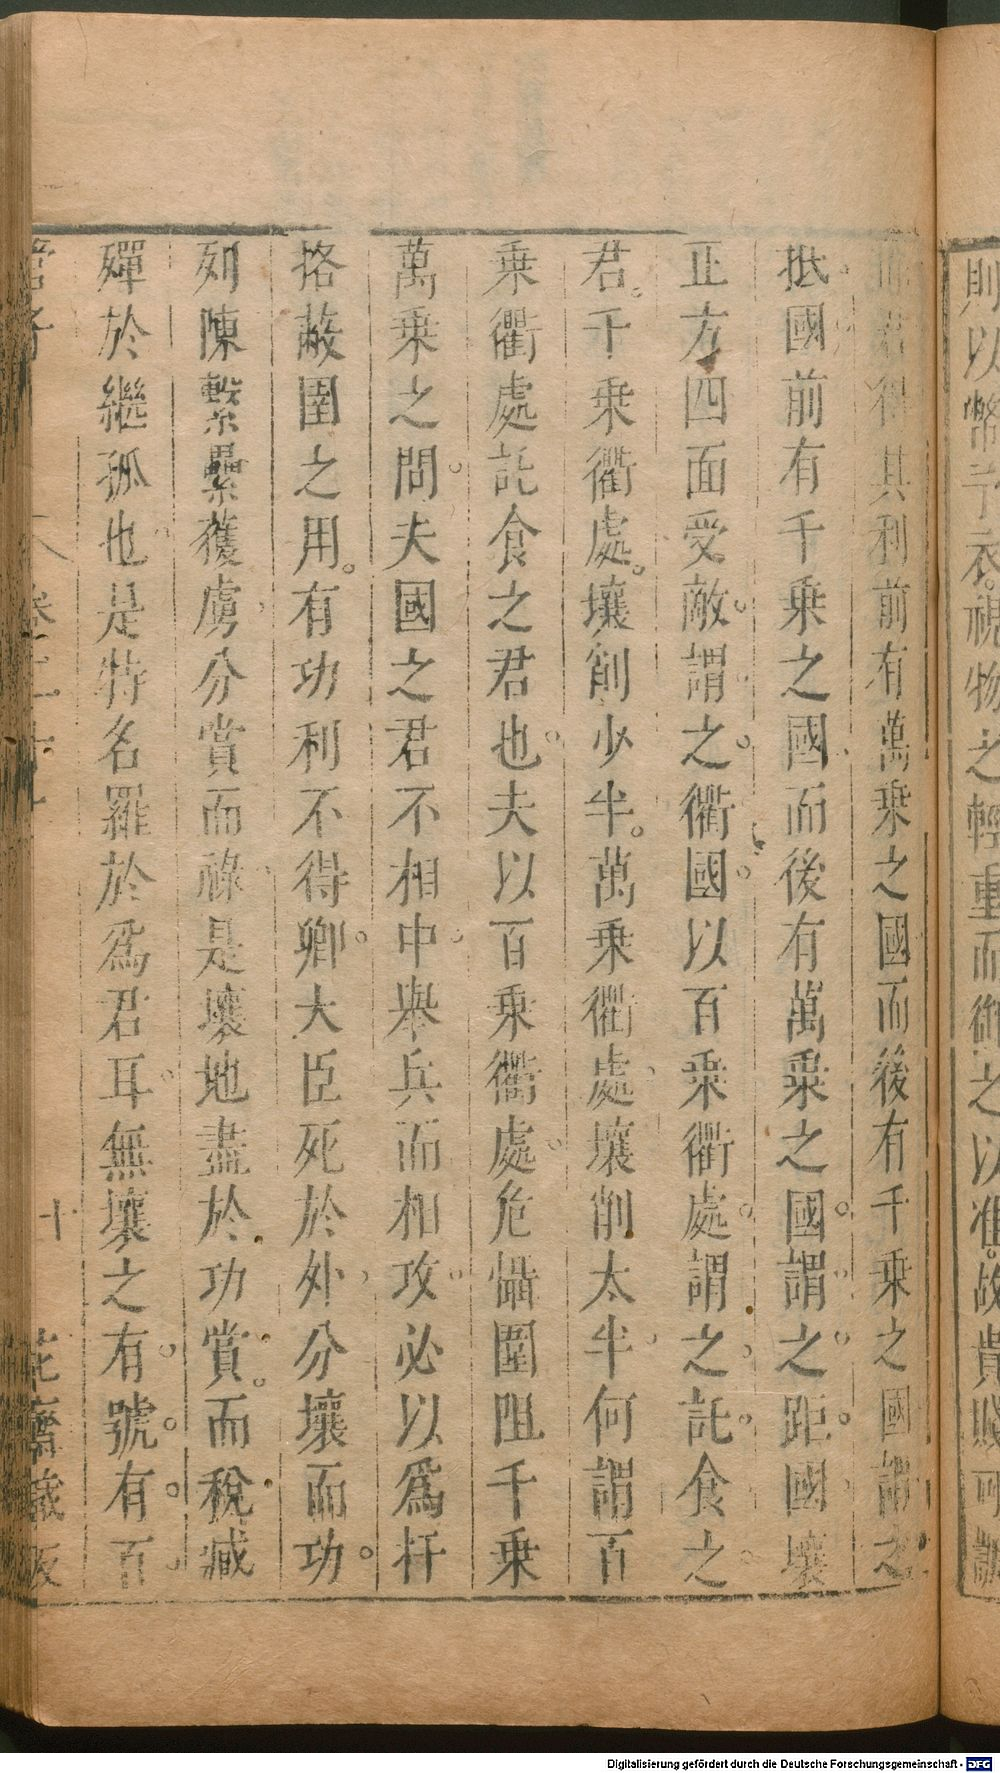 則以幣予衣視物之輕重而御之以准故貴賤可調
而君得其利前有萬乘之國而後有千乘之國謂之
抵國前有千乘之國而後有萬乘之國謂之距國壤
正方四面受敵謂之衢國以百乘衢處謂之託食之
君千乘衢處壤削少半萬乘衢處壤削太半何謂百
乘衢處託食之君也夫以百乘衢處危懾圍阻千乘
萬乘之問夫國之君不相中舉兵而相攻必以為扞
挌蔽圉之用有功利不得鄉大臣死於外分壤而功
列陳繫纍獲虜分賞而祿是壤地盡於功賞而稅臧
殫於繼孤也是特名羅於爲君耳無壤之有號有百
管子
卷二十
十
花齋藏板
Digitalisierung gefördert durch die Deutsche Forschungsgemeinschaft - DFG